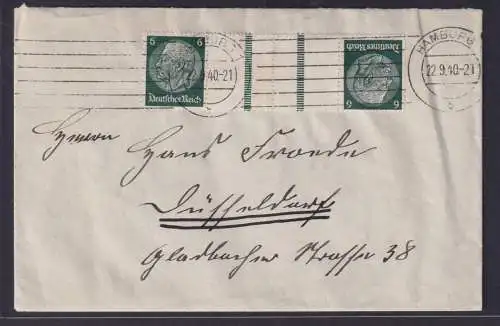 6 6
Deutsches Reich
40-21
Deutsches Reich
6 6
HAMBURG
22.9.40-21
Herrn
Hans Froede
Düsseldorf
Gladbacher Strasse 38